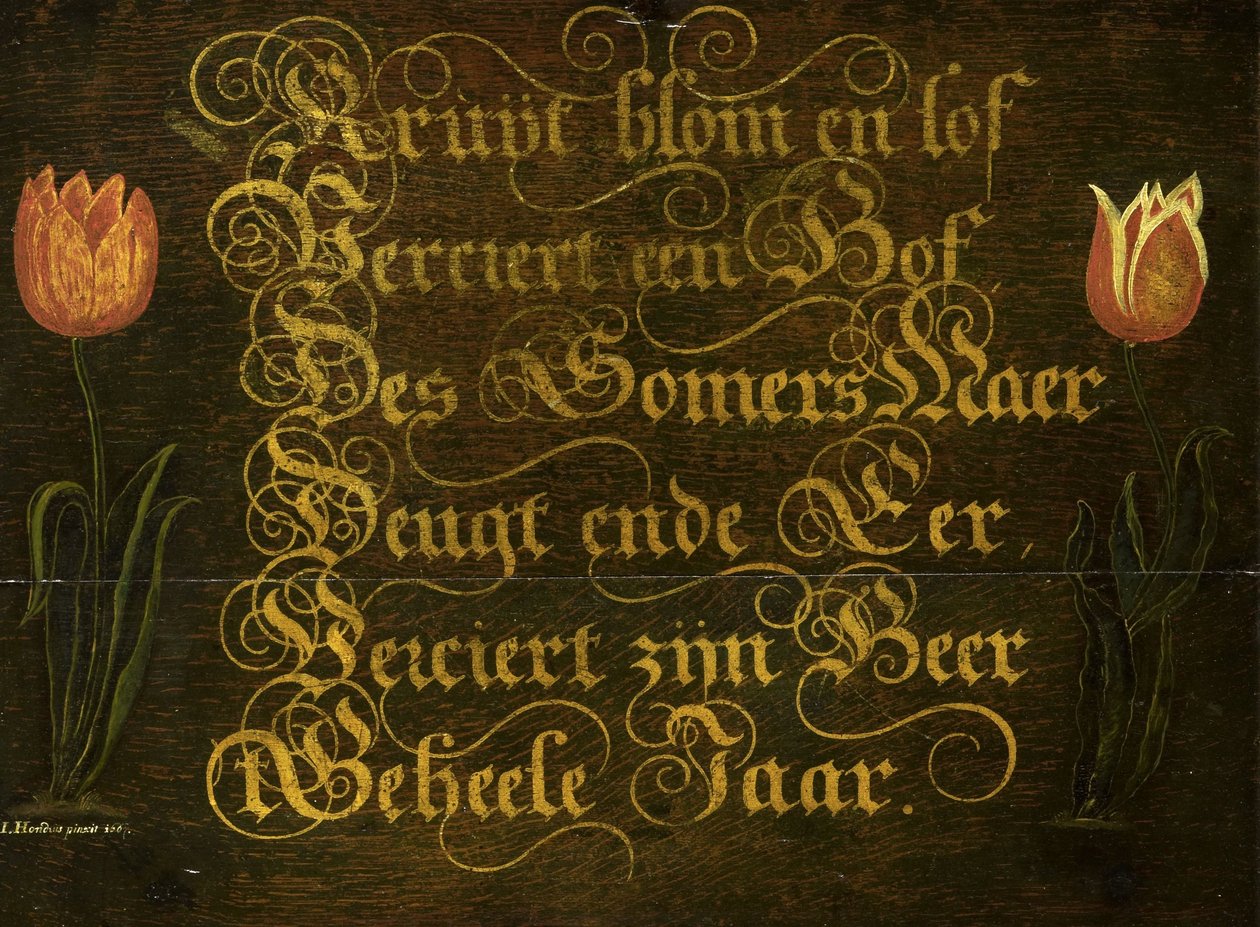 Krùÿt blom en lof
Verciert een Hof,
Des Somers Maer
Deugt ende Eer,
Verciert zijn Heer
tGeheele Jaar.
I. Hondius pinxit